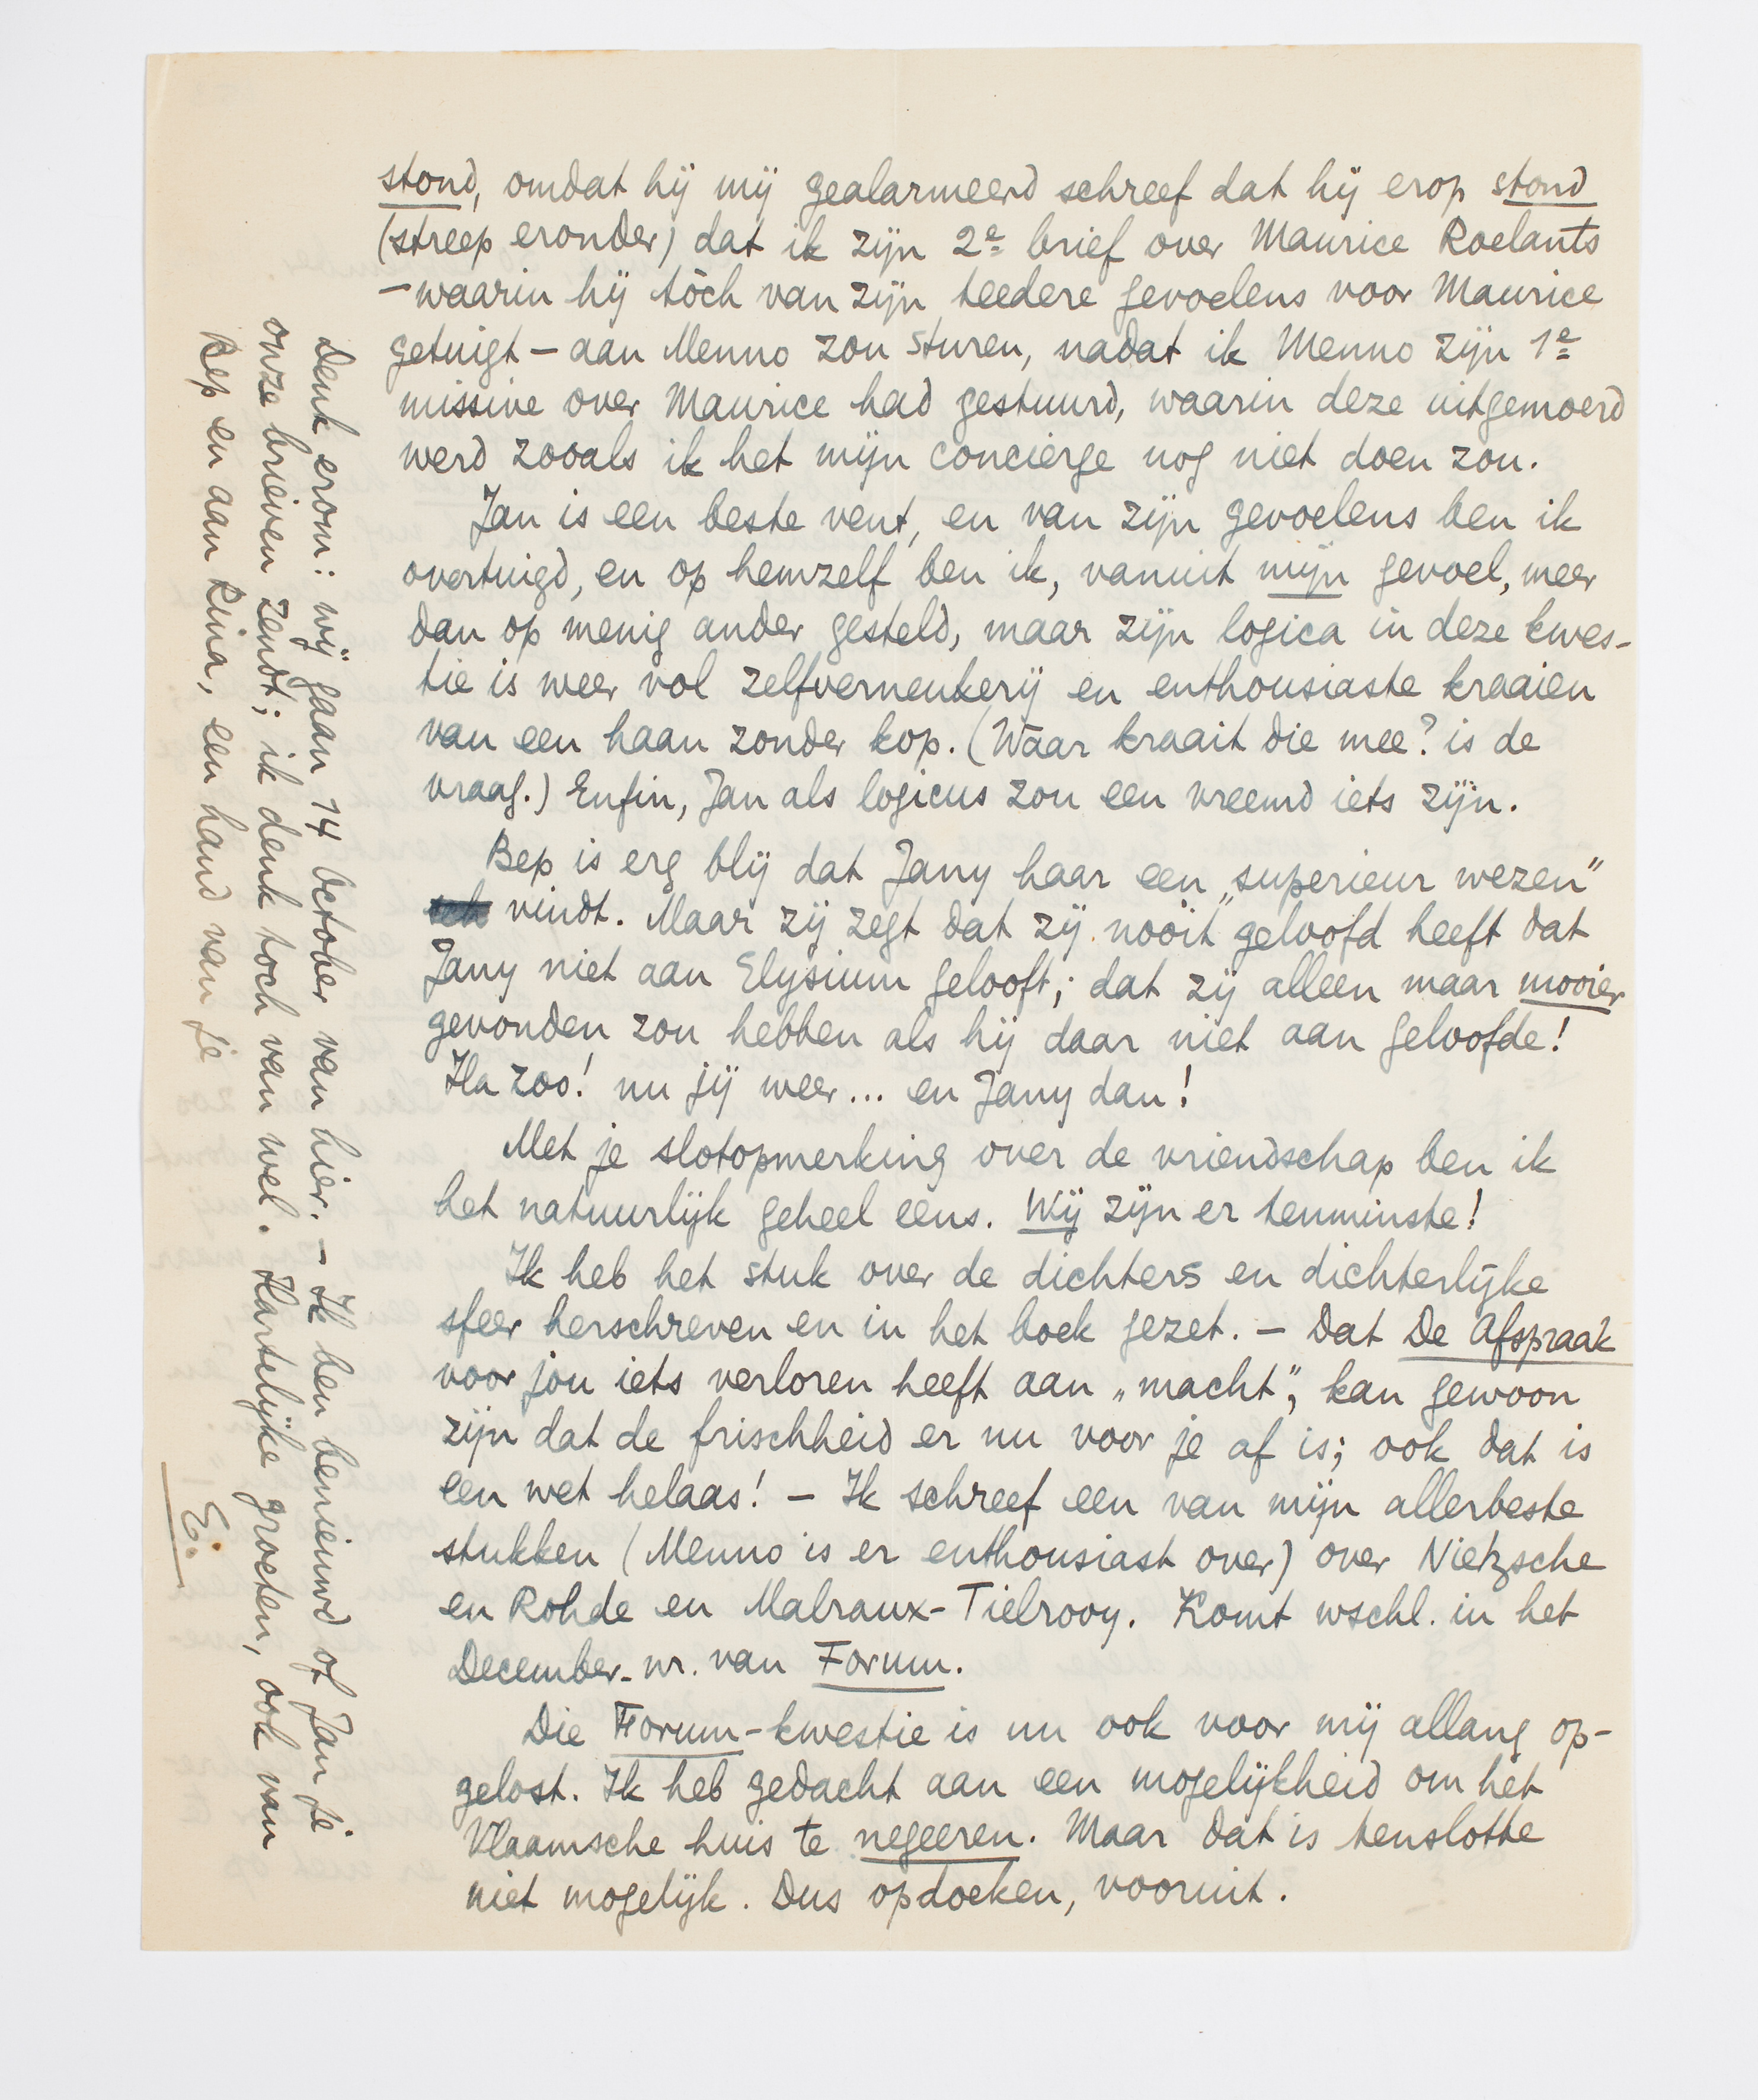 stond, omdat hij mij gealarmeerd schreef dat hij erop stond
(streep eronder) dat ik zijn 2e brief over Maurice Roelants
– waarin hij tòch van zijn teedere gevoelens voor Maurice
getuigt – aan Menno zou sturen, nadat ik Menno zijn 1e
missive over Maurice had gestuurd, waarin deze uitgemoerd
werd zooals ik het mijn concierge nog niet doen zou.
Jan is een beste vent, en van zijn gevoelens ben ik
overtuigd, en op hemzelf ben ik, vanuit mijn gevoel, meer
dan op menig ander gesteld, maar zijn logica in deze kwes-
tie is weer vol zelfverneukerij en enthousiaste kraaien
van een haan zonder kop. (Waar kraait die mee? is de
vraag.) Enfin, Jan als logicus zou een vreemd iets zijn.
Bep is erg blij dat Jany haar een „superieur wezen”
vindt. Maar zij zegt dat zij nooit geloofd heeft dat
Jany niet aan Elysium gelooft; dat zij alleen maar mooier
gevonden zou hebben als hij daar niet aan geloofde!
Ha zoo! nu jij weer... en Jany dan!
Met je slotopmerking over de vriendschap ben ik
het natuurlijk geheel eens. Wij zijn er tenminste!
Ik heb het stuk over de dichters en dichterlijke
sfeer herschreven en in het boek gezet. – Dat De Afspraak
voor jou iets verloren heeft aan „macht”, kan gewoon
zijn dat de frischheid er nu voor je af is; ook dat is
een wet helaas! – Ik schreef een van mijn allerbeste
stukken (Menno is er enthousiast over) over Nietzsche
en Rohde en Malraux-Tielrooy. Komt wschl. in het
December-nr. van Forum.
Die Forum-kwestie is nu ook voor mij allang op-
gelost. Ik heb gedacht aan een mogelijkheid om het
Vlaamsche huis te negeeren. Maar dat is tenslotte
niet mogelijk. Dus opdoeken, vooruit.
Denk erom: wij gaan 14 October van hier. – Ik ben benieuwd of Jan je
onze brieven zendt; ik denk toch van wel. Hartelijke groeten, ook van
Bep en aan Rina, een hand van je
E.